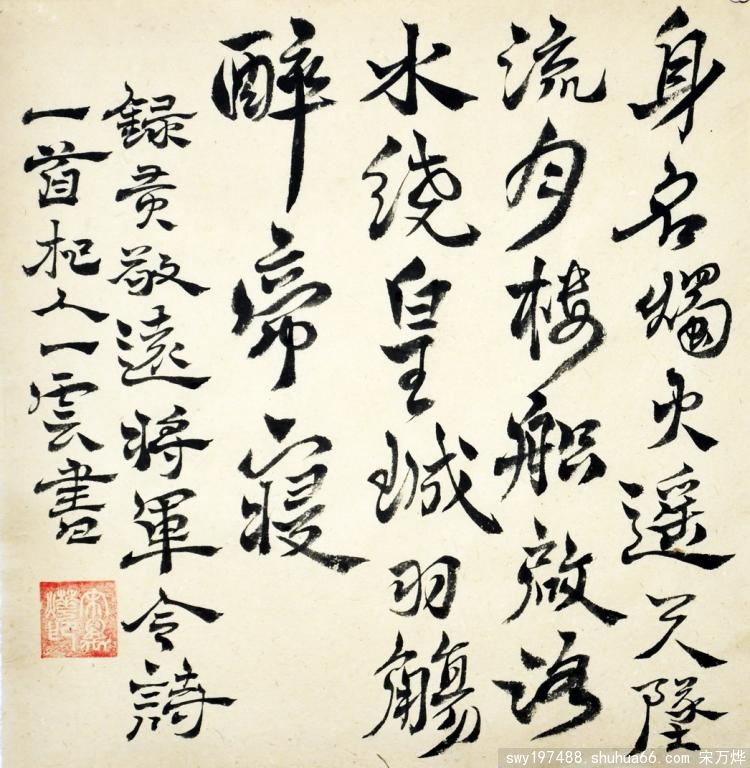 身名燭火遥天墜
流月楼船啟洛
水绕皇城羽觴
醉帝寝
録黄敬遠將軍令詩
一首杞人一雲書
swy197488.shuhua66.com 宋万烨